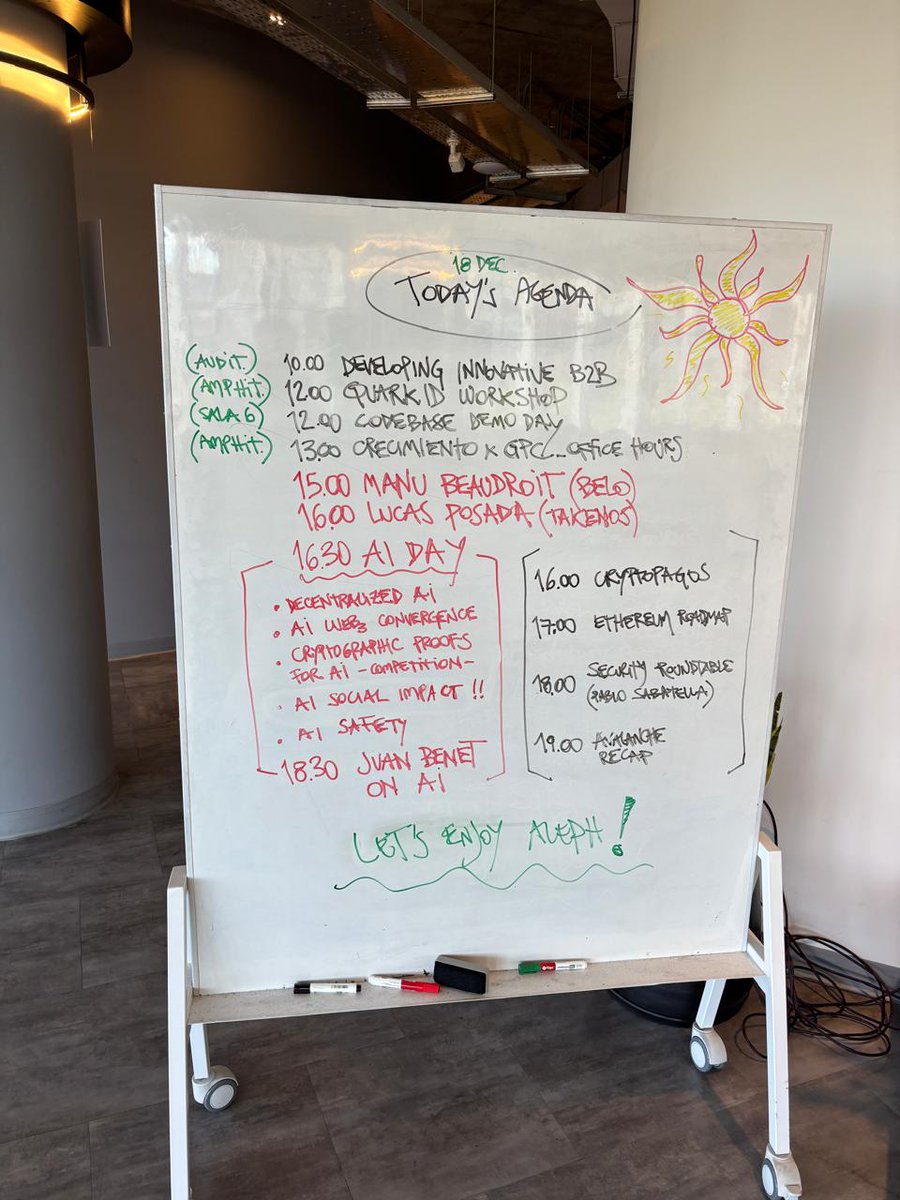 18 DEC.
TODAY'S AGENDA
(AUDIT.) 10.00 DEVELOPING INNOVATIVE B2B
(AMPHIT.) 12.00 QUARKID WORKSHOP
(SALA 6) 12.00 CODEBASE DEMO DAY
(AMPHIT.) 13.00 CRECIMIENTO x GPC_OFFICE HOURS
15.00 MANU BEAUDROIT (BELO)
16.00 LUCAS POSADA (TAKENOS)
16.30 AI DAY
• DECENTRALIZED AI
• AI WEB3 CONVERGENCE
• CRYPTOGRAPHIC PROOFS
FOR AI - COMPETITION -
• AI SOCIAL IMPACT !!
• AI SAFETY
18.30 JUAN BENET
ON AI
16.00 CRYPTOPAGOS
17.00 ETHEREUM ROADMAP
18.00 SECURITY ROUNDTABLE
(PABLO SABATELLA)
19.00 AVALANCHE
RECAP
LET'S ENJOY ALEPH!